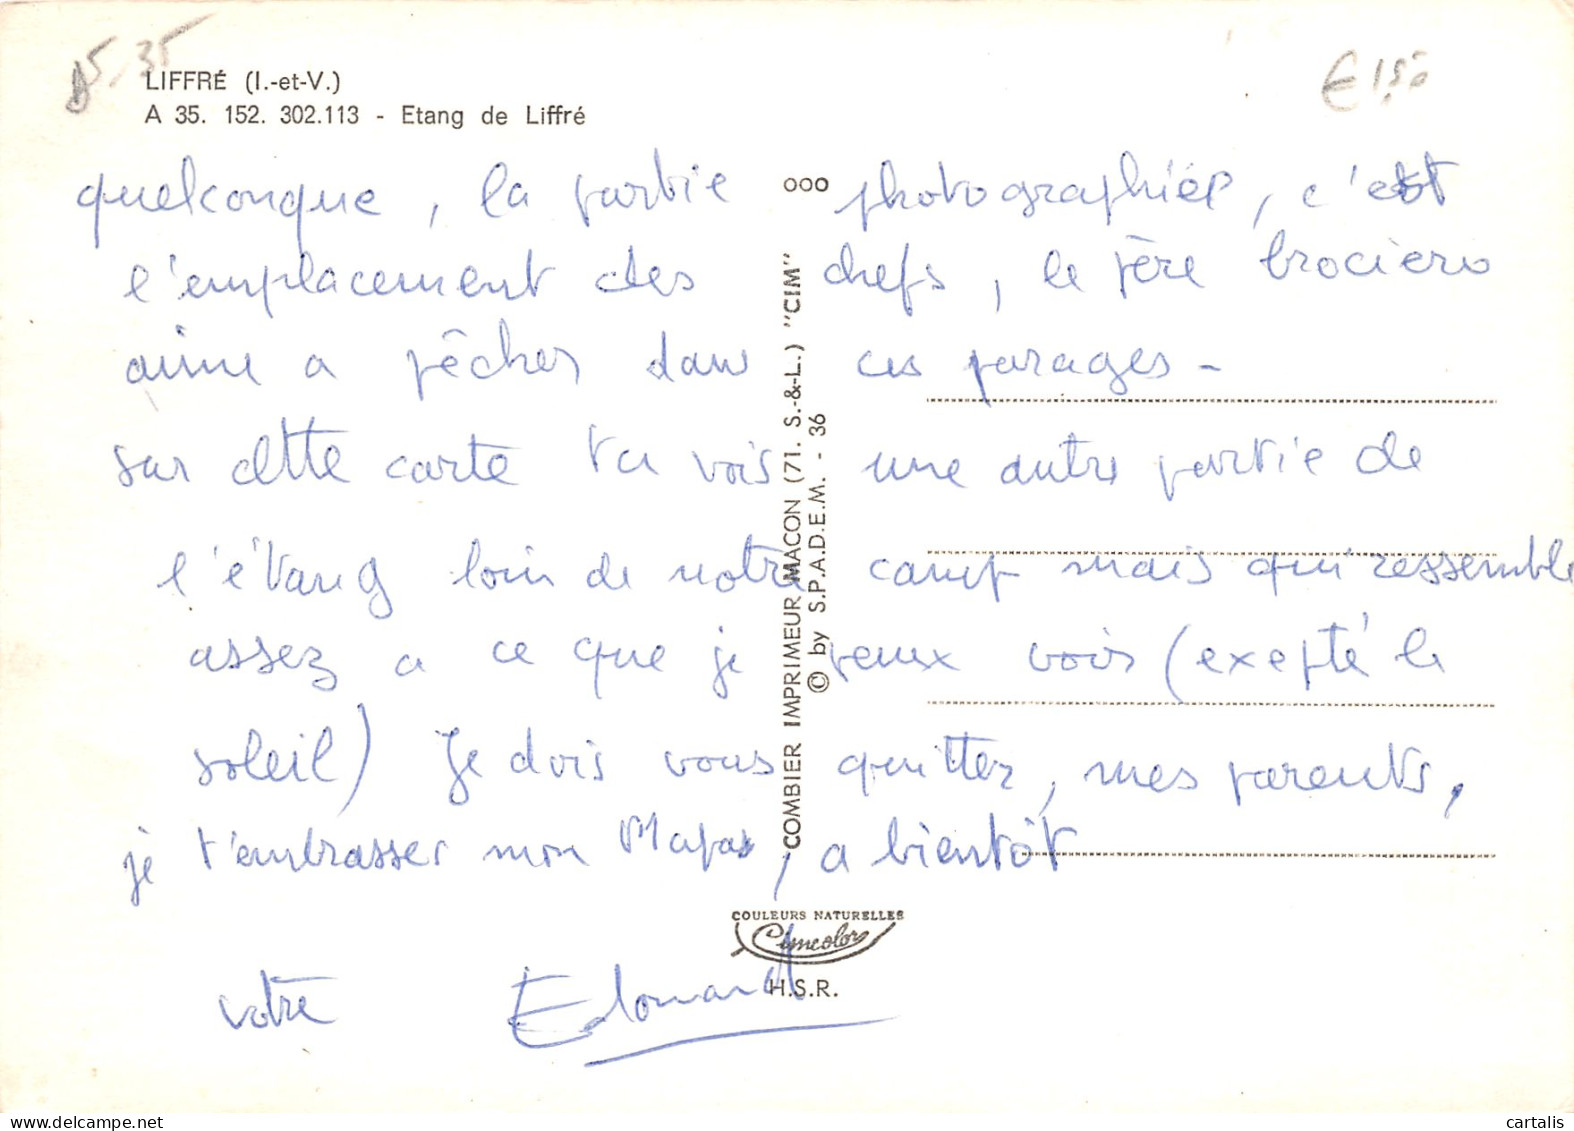 85-35
LIFFRÉ (I.-et-V.)
A 35. 152. 302.113 - Etang de Liffré
€ 1,50
quelconque, la partie photographiée, c'est
l'emplacement des chefs, le père
aime a pêcher dans ces parages -
sur cette carte tu vois une autre partie de
l'étang loin de notre camp mais qui ressemble
assez a ce que je peux voir (exepté le
soleil) Je dois vous quitter, mes parents,
je t'embrasser mon, a bientôt
votre Edouard
ooo
COMBIER IMPRIMEUR MACON (71. S.-&-L.) "CIM"
© by S.P.A.D.E.M. - 36
COULEURS NATURELLES
Cimcolor
H.S.R.
www.delcampe.net
cartalis